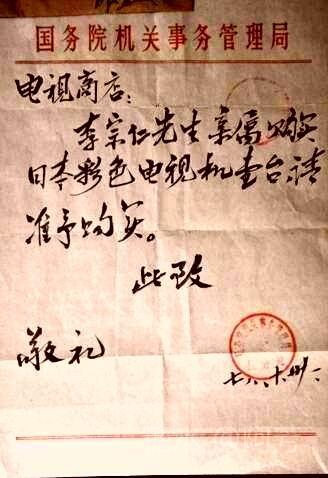 国务院机关事务管理局
电视商店：
李宗仁先生亲属购买
日本彩色电视机壹台请
准予购买。
此致
敬礼